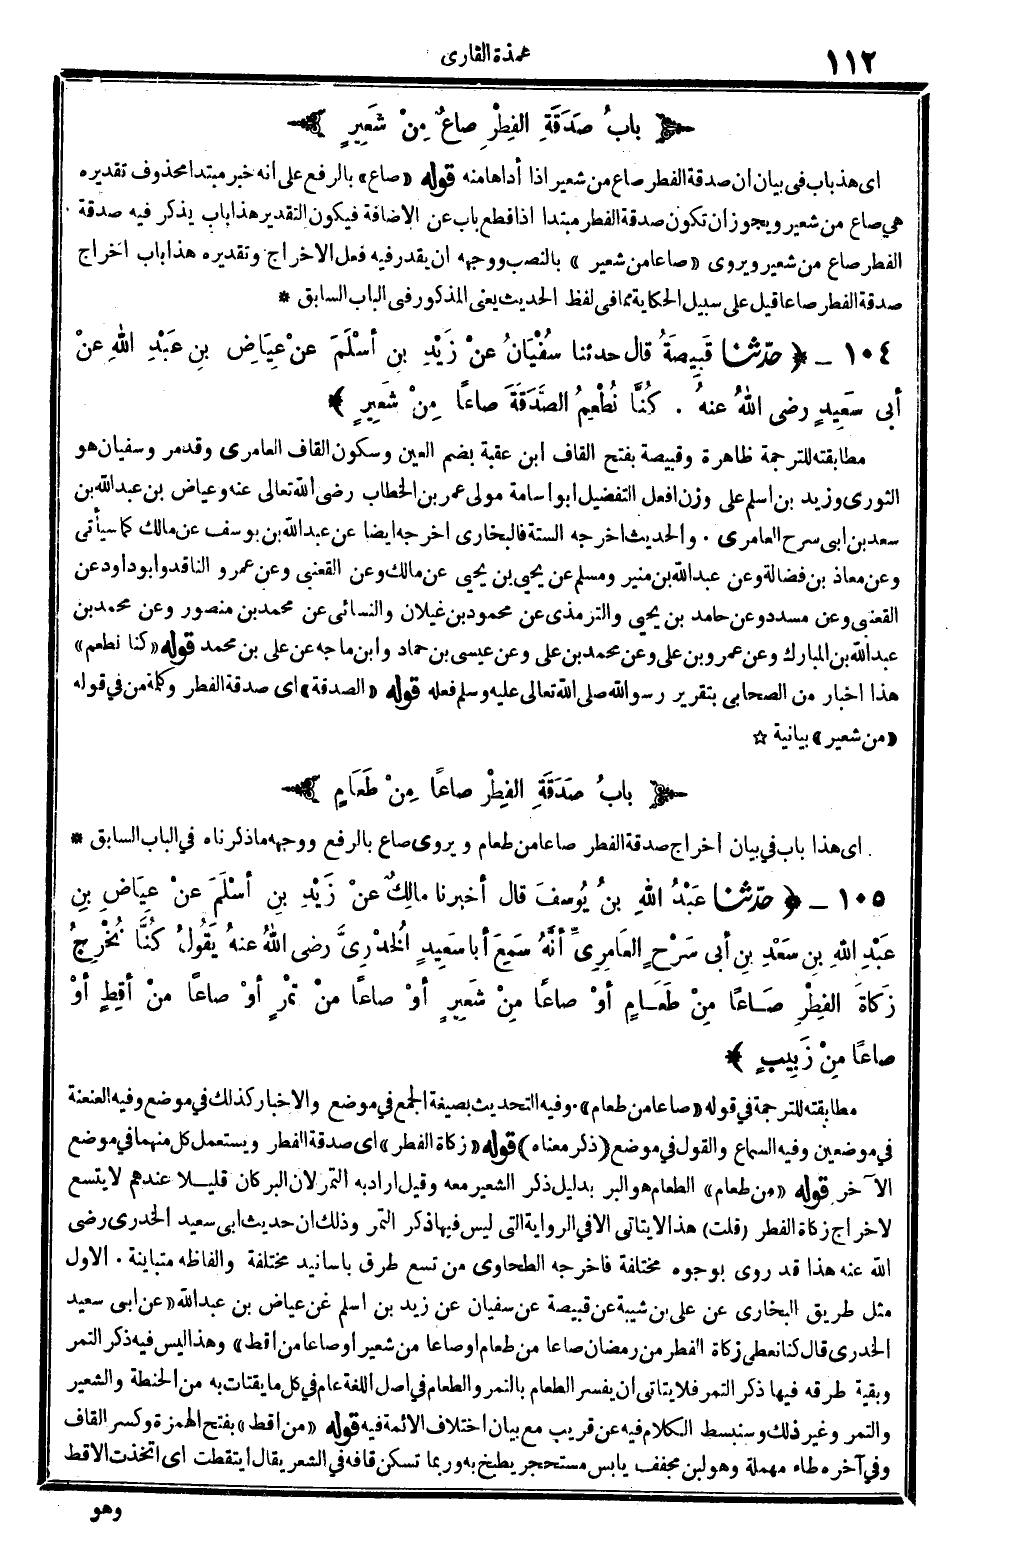 ١١٢
عمدة القارى
﴿ بابُ صَدَقَةِ الفِطْرِ صاعٌ مِنْ شَعِيرٍ ﴾
اى هذ باب فى بيان ان صدقة الفطر صاع من شعير اذا أداها منه قوله «صاع» بالرفع على انه خبر مبتدا محذوف تقديره
هي صاع من شعير ويجوز ان تكون صدقة الفطر مبتدا اذا قطع باب عن الاضافة فيكون التقدير هذا باب يذكر فيه صدقة
الفطر صاع من شعير ويروى «صاعا من شعير» بالنصب ووجهه ان يقدر فيه فعل الاخراج وتقديره هذا باب اخراج
صدقة الفطر صاعا قيل على سبيل الحكاية مما فى لفظ الحديث يعنى المذكور فى الباب السابق *
١٠٤ – ﴿ حدّثنا قَبِيصَةُ قال حدثنا سُفْيَانُ عنْ زَيْدِ بنِ أسْلَمَ عنْ عِيَاضِ بنِ عَبْدِ اللهِ عنْ
أبى سَعِيدٍ رضى اللهُ عنهُ . كُنَّا نُطْعِمُ الصَّدَقَةَ صاعًا مِنْ شَعِيرٍ ﴾
مطابقته للترجمة ظاهرة وقبيصة بفتح القاف ابن عقبة بضم العين وسكون القاف العامرى وقدمر وسفيان هو
الثورى وزيد بن اسلم على وزن افعل التفضيل ابو اسامة مولى عمر بن الخطاب رضى الله تعالى عنه وعياض بن عبد الله بن
سعد بن ابى سرح العامرى . والحديث اخرجه الستة فالبخارى اخرجه ايضا عن عبد الله بن يوسف عن مالك كما سيأتى
وعن معاذ بن فضالة وعن عبد الله بن منير ومسلم عن يحيى بن يحيى عن مالك وعن القعنبى وعن عمرو الناقد وابو داود عن
القعنبى وعن مسدد وعن حامد بن يحيى والترمذى عن محمود بن غيلان والنسائى عن محمد بن منصور وعن محمد بن
عبد الله بن المبارك وعن عمرو بن على وعن محمد بن على وعن عيسى بن حماد وابن ماجه عن على بن محمد قوله «كنا نطعم»
هذا اخبار من الصحابى بتقرير رسو الله صلى الله تعالى عليه وسلم فعله قوله «الصدقة» اى صدقة الفطر وكلمة من في قوله
«من شعير» بيانية ☆
﴿ بابُ صَدَقَةِ الفِطْرِ صاعًا مِنْ طَعَامٍ ﴾
اى هذا باب في بيان اخراج صدقة الفطر صاعا من طعام ويروى صاع بالرفع ووجهه ما ذكرناه في الباب السابق *
١٠٥ – ﴿ حدّثنا عَبْدُ اللهِ بنُ يُوسفَ قال أخبرنا مالِكٌ عنْ زَيْدِ بنِ أسْلَمَ عَنْ عِيَاضِ بنِ
عَبْدِ اللهِ بنِ سَعْدِ بنِ أبى سَرْحٍ العَامِرِىِّ أنَّهُ سَمِعَ أبا سَعِيدٍ الخُدْرِىَّ رضى اللهُ عنهُ يَقُولُ كُنَّا نُخْرِجُ
زَكاةَ الفِطْرِ صَاعًا مِنْ طَعَامٍ أوْ صاعًا مِنْ شَعِيرٍ أوْ صاعًا مِنْ تَمْرٍ أوْ صاعًا مِنْ أقِطٍ أوْ
صاعًا مِنْ زَبِيبٍ ﴾
مطابقته للترجمة في قوله «صاعا من طعام» . وفيه التحديث بصيغة الجمع في موضع والاخبار كذلك في موضع وفيه العنعنة
في موضعين وفيه السماع والقول في موضع (ذكر معناه) قوله «زكاة الفطر» اى صدقة الفطر ويستعمل كل منهما في موضع
الآخر قوله «من طعام» الطعام هو البر بدليل ذكر الشعير معه وقيل اراد به التمر لان البر كان قليلا عندهم لا يتسع
لاخراج زكاة الفطر (قلت) هذا لا يتاتى الا في الرواية التى ليس فيها ذكر التمر وذلك ان حديث ابى سعيد الخدرى رضى
الله عنه هذا قد روى بوجوه مختلفة فاخرجه الطحاوى من تسع طرق باسانيد مختلفة والفاظه متباينة . الاول
مثل طريق البخارى عن على بن شيبة عن قبيصة عن سفيان عن زيد بن اسلم عن عياض بن عبد الله «عن ابى سعيد
الخدرى قال كنا نعطى زكاة الفطر من رمضان صاعا من طعام او صاعا من شعير او صاعا من اقط» وهذا ليس فيه ذكر التمر
وبقية طرقه فيها ذكر التمر فلا يتاتى ان يفسر الطعام بالتمر والطعام في اصل اللغة عام في كل ما يقتات به من الحنطة والشعير
والتمر وغير ذلك وسنبسط الكلام فيه عن قريب مع بيان اختلاف الائمة فيه قوله «من اقط» بفتح الهمزة وكسر القاف
وفي آخره طاء مهملة وهو لبن مجفف يابس مستحجر يطبخ به وربما تسكن قافه في الشعر يقال ايتقطت اى اتخذت الاقط
وهو